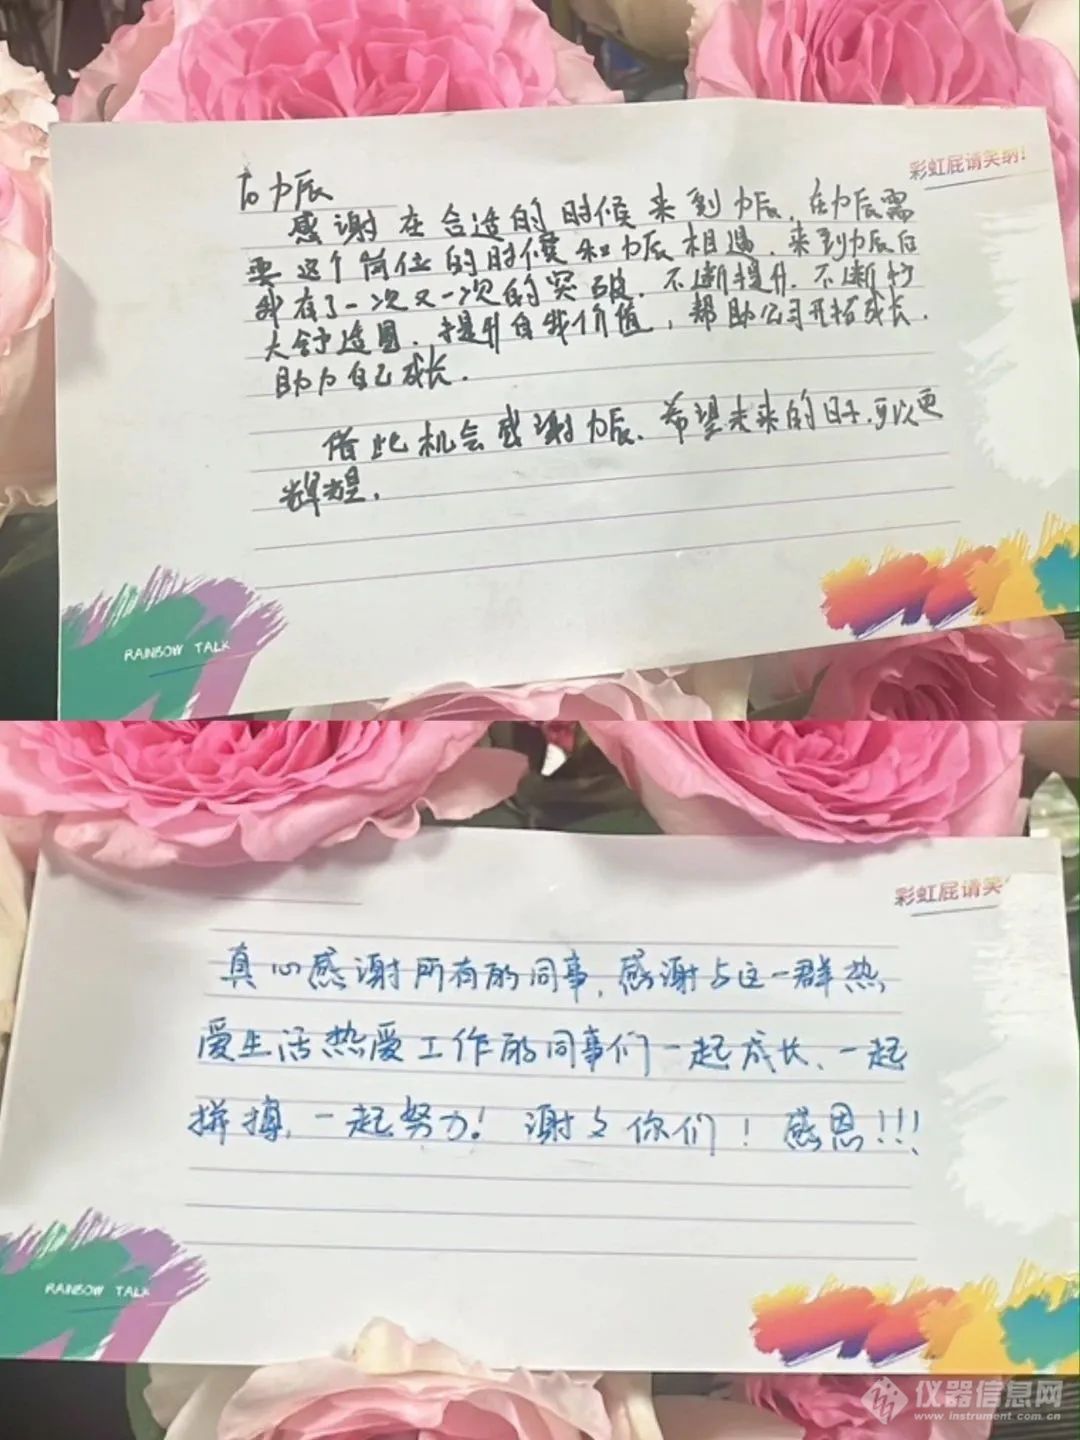 彩虹屁请笑纳!
To 力辰
感谢在合适的时候来到力辰，在力辰需
要这个岗位的时候和力辰相遇，来到力辰后
我有了一次又一次的突破，不断提升，不断扩
大舒适圈，提升自我价值，帮助公司开拓成长，
助力自己成长．
借此机会感谢力辰，希望未来的日子，可以更
辉煌．
RAINBOW TALK
彩虹屁请笑
真心感谢所有的同事，感谢与这一群热
爱生活热爱工作的同事们一起成长、一起
拼搏，一起努力！谢谢你们！感恩!!!
RAINBOW TALK
仪器信息网
www.instrument.com.cn